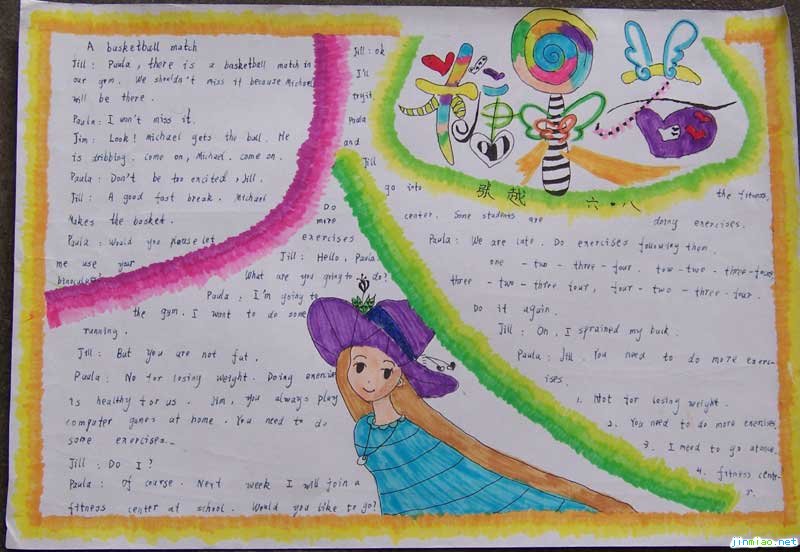 A basketball match
Jill: Paula, there is a basketball match in
our gym. We shouldn't miss it because Michael
will be there.
Paula: I won't miss it.
Jim: Look! michael gets the ball. He
is dribbling. come on, Michael. come on.
Paula: Don't be too excited, Jill.
Jill: A good fast break. Michael
Makes the basket.
Paula: Would you please let
me use your
binoculars
Jill: ok
I'll
try it.
Paula
and
Jill
go into
the fitness
center. Some students are
doing exercises.
Do
more
exercises
Jill: Hello, Paula.
What are you going to do?
Paula: I'm going to
the gym. I want to do some
running.
Jill: But you are not fat.
Paula: No for losing weight. Doing exercise
is healthy for us. Jim, you always play
computer games at home. You need to do
some exercises.
Jill: Do I?
Paula: Of course. Next week I will join a
fitness center at school. Would you like to go?
张越 六·八
Paula: We are late. Do exercises following them.
one - two - three - four. tow - two - three - four,
three - two - three four, four - two - three - four.
Do it again.
Jill: Oh, I sprained my back.
Paula: Jill. You need to do more exerc-
ises.
1. Not for losing weight.
2. You need to do more exercises.
3. I need to go at once.
4. fitness cente-
r.
jinmiao.net